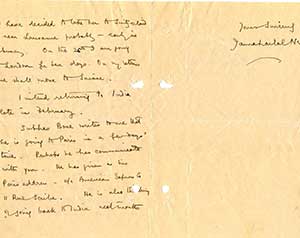 have decided to take her to Switzerland
near Lausanne probably - early in
February. On the 20th I am going
London for ten days. On my return
we shall move to Suisse.
I intend returning to India
late in February.
Subhas Bose writes to me that
he is going to Paris in a few days'
time. Perhaps he has communicated
with you. He has given as his
Paris address - c/o American Express Co
11 Rue Scribe. He is also thinking
of going back to India next month
Yours Sincerely
Jawaharlal N